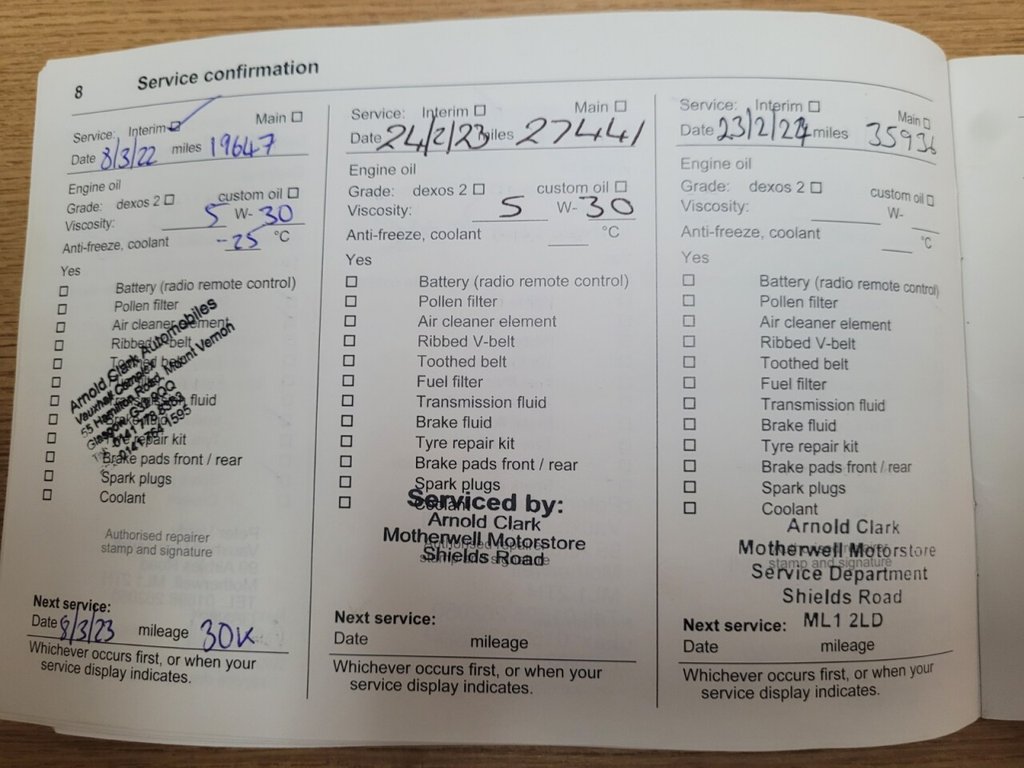 8 Service confirmation
Service: Interim Main
Date 8/3/22 miles 19647
Engine oil
Grade: dexos 2 custom oil
Viscosity: 5 W- 30
Anti-freeze, coolant -25 °C
Yes
Battery (radio remote control)
Pollen filter
Air cleaner element
Ribbed V-belt
Toothed belt
fluid
Brake fluid
Tyre repair kit
Brake pads front / rear
Spark plugs
Coolant
Arnold Clark Automobiles
Vauxhall Complex
55 Hamilton Road, Mount Vernon
Glasgow
Authorised repairer
stamp and signature
Next service:
Date 8/3/23 mileage 30K
Whichever occurs first, or when your
service display indicates.
Service: Interim Main
Date 24/2/23 miles 27441
Engine oil
Grade: dexos 2 custom oil
Viscosity: 5 W- 30
Anti-freeze, coolant °C
Yes
Battery (radio remote control)
Pollen filter
Air cleaner element
Ribbed V-belt
Toothed belt
Fuel filter
Transmission fluid
Brake fluid
Tyre repair kit
Brake pads front / rear
Spark plugs
Coolant
Serviced by:
Arnold Clark
Motherwell Motorstore
Shields Road
Authorised repairer
stamp and signature
Next service:
Date mileage
Whichever occurs first, or when your
service display indicates.
Service: Interim Main
Date 23/2/24 miles 35936
Engine oil
Grade: dexos 2 custom oil
Viscosity: W-
Anti-freeze, coolant °C
Yes
Battery (radio remote control)
Pollen filter
Air cleaner element
Ribbed V-belt
Toothed belt
Fuel filter
Transmission fluid
Brake fluid
Tyre repair kit
Brake pads front / rear
Spark plugs
Coolant
Arnold Clark
Motherwell Motorstore
Authorised repairer
stamp and signature
Service Department
Shields Road
ML1 2LD
Next service:
Date mileage
Whichever occurs first, or when your
service display indicates.